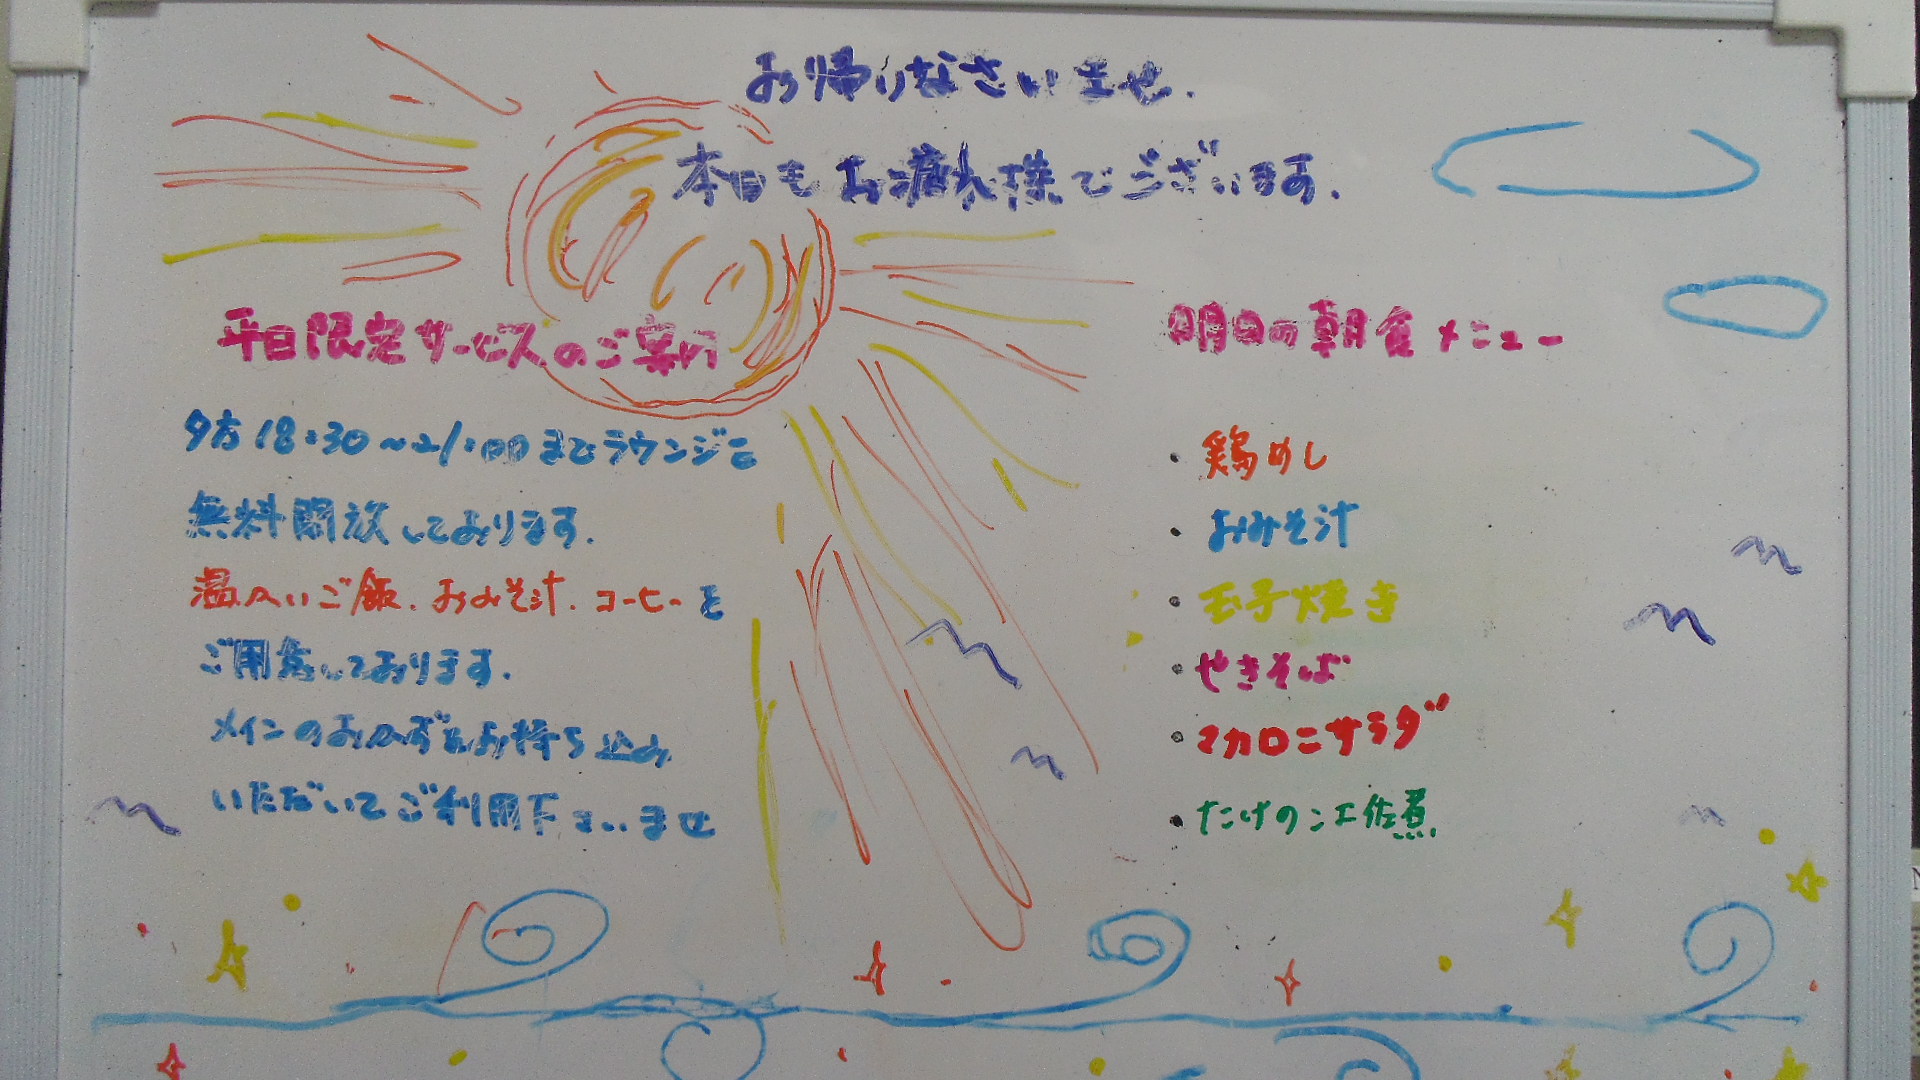 お帰りなさいませ.
本日もお疲れ様でございます.
平日限定サービスのご案内
夕方18:30〜21:00までラウンジを
無料開放しております.
温かいご飯、おみそ汁、コーヒーを
ご用意しております.
メインのおかずをお持ち込み
いただいてご利用下さいませ
明日の朝食メニュー
・鶏めし
・おみそ汁
・玉子焼き
・やきそば
・マカロニサラダ
・たけのこ土佐煮